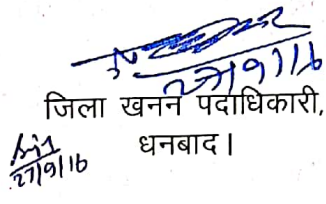 27/9/16
जिला खनन पदाधिकारी,
धनबाद।
27/9/16